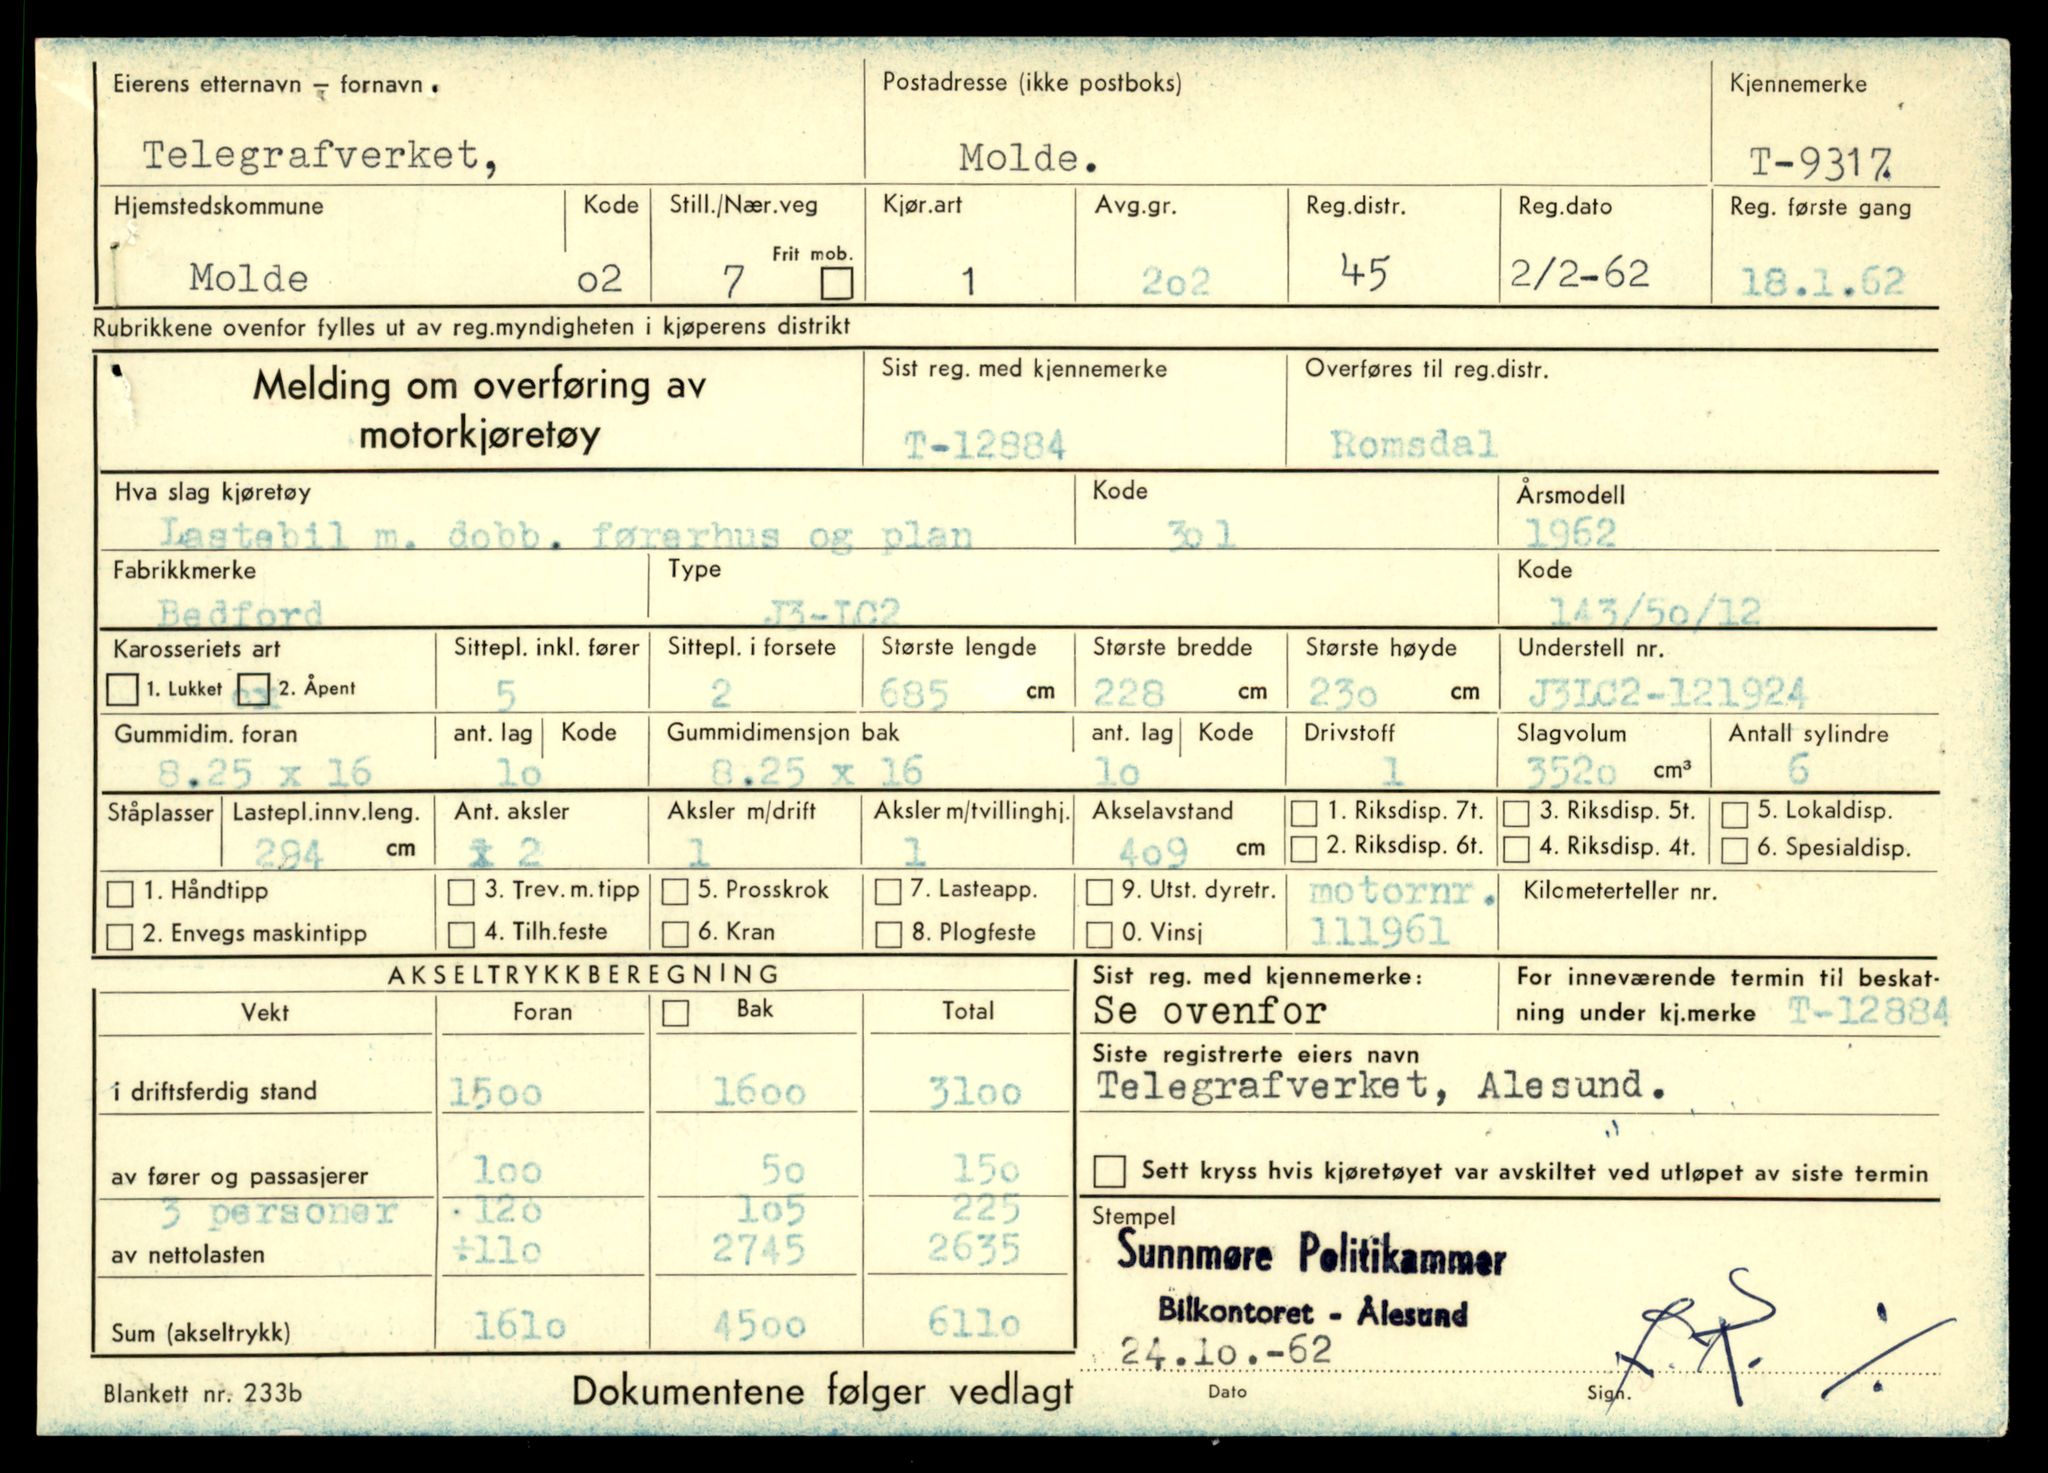 Eierens etternavn – fornavn . Postadresse (ikke postboks) Kjennemerke
Telegrafverket, Molde. T-9317.
Hjemstedskommune Kode Still./Nær.veg Kjør.art Avg.gr. Reg.distr. Reg.dato Reg. første gang
Frit mob.
Molde o2 7 1 2o2 45 2/2-62 18.1.62
Rubrikkene ovenfor fylles ut av reg.myndigheten i kjøperens distrikt
Melding om overføring av motorkjøretøy
Sist reg. med kjennemerke Overføres til reg.distr.
T-12884 Romsdal
Hva slag kjøretøy Kode Årsmodell
Lastebil m. dobb. førerhus og plan 3o1 1962
Fabrikkmerke Type Kode
Bedford J3-LC2 143/5o/12
Karosseriets art Sittepl. inkl. fører Sittepl. i forsete Største lengde Største bredde Største høyde Understell nr.
1. Lukket 2. Åpent 5 2 685 cm 228 cm 23o cm J3LC2-121924
Gummidim. foran ant. lag Kode Gummidimensjon bak ant. lag Kode Drivstoff Slagvolum Antall sylindre
8.25 x 16 1o 8.25 x 16 1o 1 352o cm³ 6
Ståplasser Lastepl.innv.leng. Ant. aksler Aksler m/drift Aksler m/tvillinghj. Akselavstand 1. Riksdisp. 7t. 3. Riksdisp. 5t. 5. Lokaldisp.
294 cm 2 1 1 4o9 cm 2. Riksdisp. 6t. 4. Riksdisp. 4t. 6. Spesialdisp.
1. Håndtipp 3. Trev. m. tipp 5. Prosskrok 7. Lasteapp. 9. Utst. dyretr. motornr. Kilometerteller nr.
2. Envegs maskintipp 4. Tilh.feste 6. Kran 8. Plogfeste 0. Vinsj 111961
AKSELTRYKKBEREGNING
Vekt Foran Bak Total
i driftsferdig stand 15oo 16oo 31oo
av fører og passasjerer 1oo 5o 15o
3 personer 12o 1o5 225
av nettolasten ÷11o 2745 2635
Sum (akseltrykk) 161o 45oo 611o
Sist reg. med kjennemerke: For inneværende termin til beskat-
Se ovenfor ning under kj.merke T-12884
Siste registrerte eiers navn
Telegrafverket, Alesund.
Sett kryss hvis kjøretøyet var avskiltet ved utløpet av siste termin
Stempel
Sunnmøre Politikammer
Bilkontoret - Ålesund
24.1o.-62
Dato Sign.
Blankett nr. 233b Dokumentene følger vedlagt